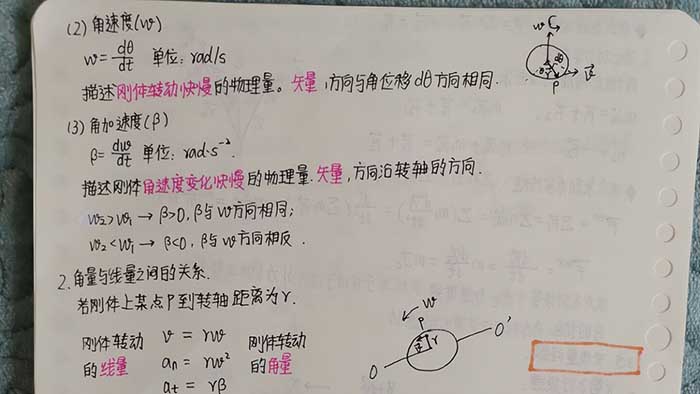 (2) 角速度(ω)
ω = dθ/dt 单位: rad/s
描述刚体转动快慢的物理量。矢量,方向与角位移dθ方向相同.
(3) 角加速度(β)
β = dω/dt 单位: rad·s⁻².
描述刚体角速度变化快慢的物理量.矢量,方向沿转轴的方向.
ω₂>ω₁ → β>0, β与ω方向相同;
ω₂<ω₁ → β<0, β与ω方向相反.
2.角量与线量之间的关系.
若刚体上某点P到转轴距离为r.
刚体转动的线量
v = rω
aₙ = rω²
aₜ = rβ
刚体转动的角量
ω
P
ω
P
r
O
O'